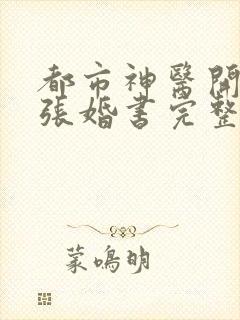 都市神醫開
張婚書完整
蒙鳴明